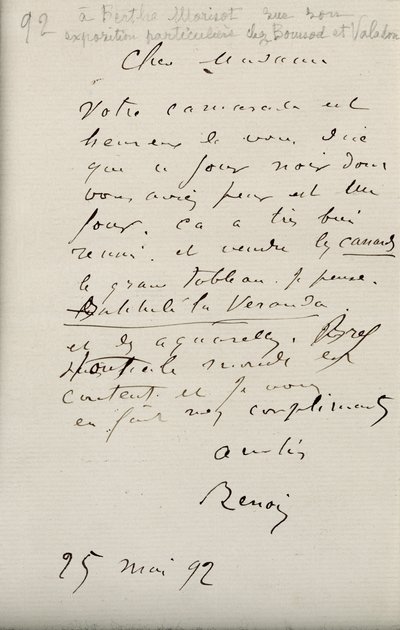 92 à Berthe Morisot sur son
exposition particulière chez Boussod et Valadon
Cher Madame
Votre camarade est
heureux de vous dire
que ce jour noir dont
vous aviez peur est un
jour. ça a très bien
réussi. et vendre les canards
le grand tableau. je pense.
la Veranda
et des aquarelles. Bref
tout le monde est
content et je vous
en fait mes compliments
amitiés
Renoir
25 mai 92